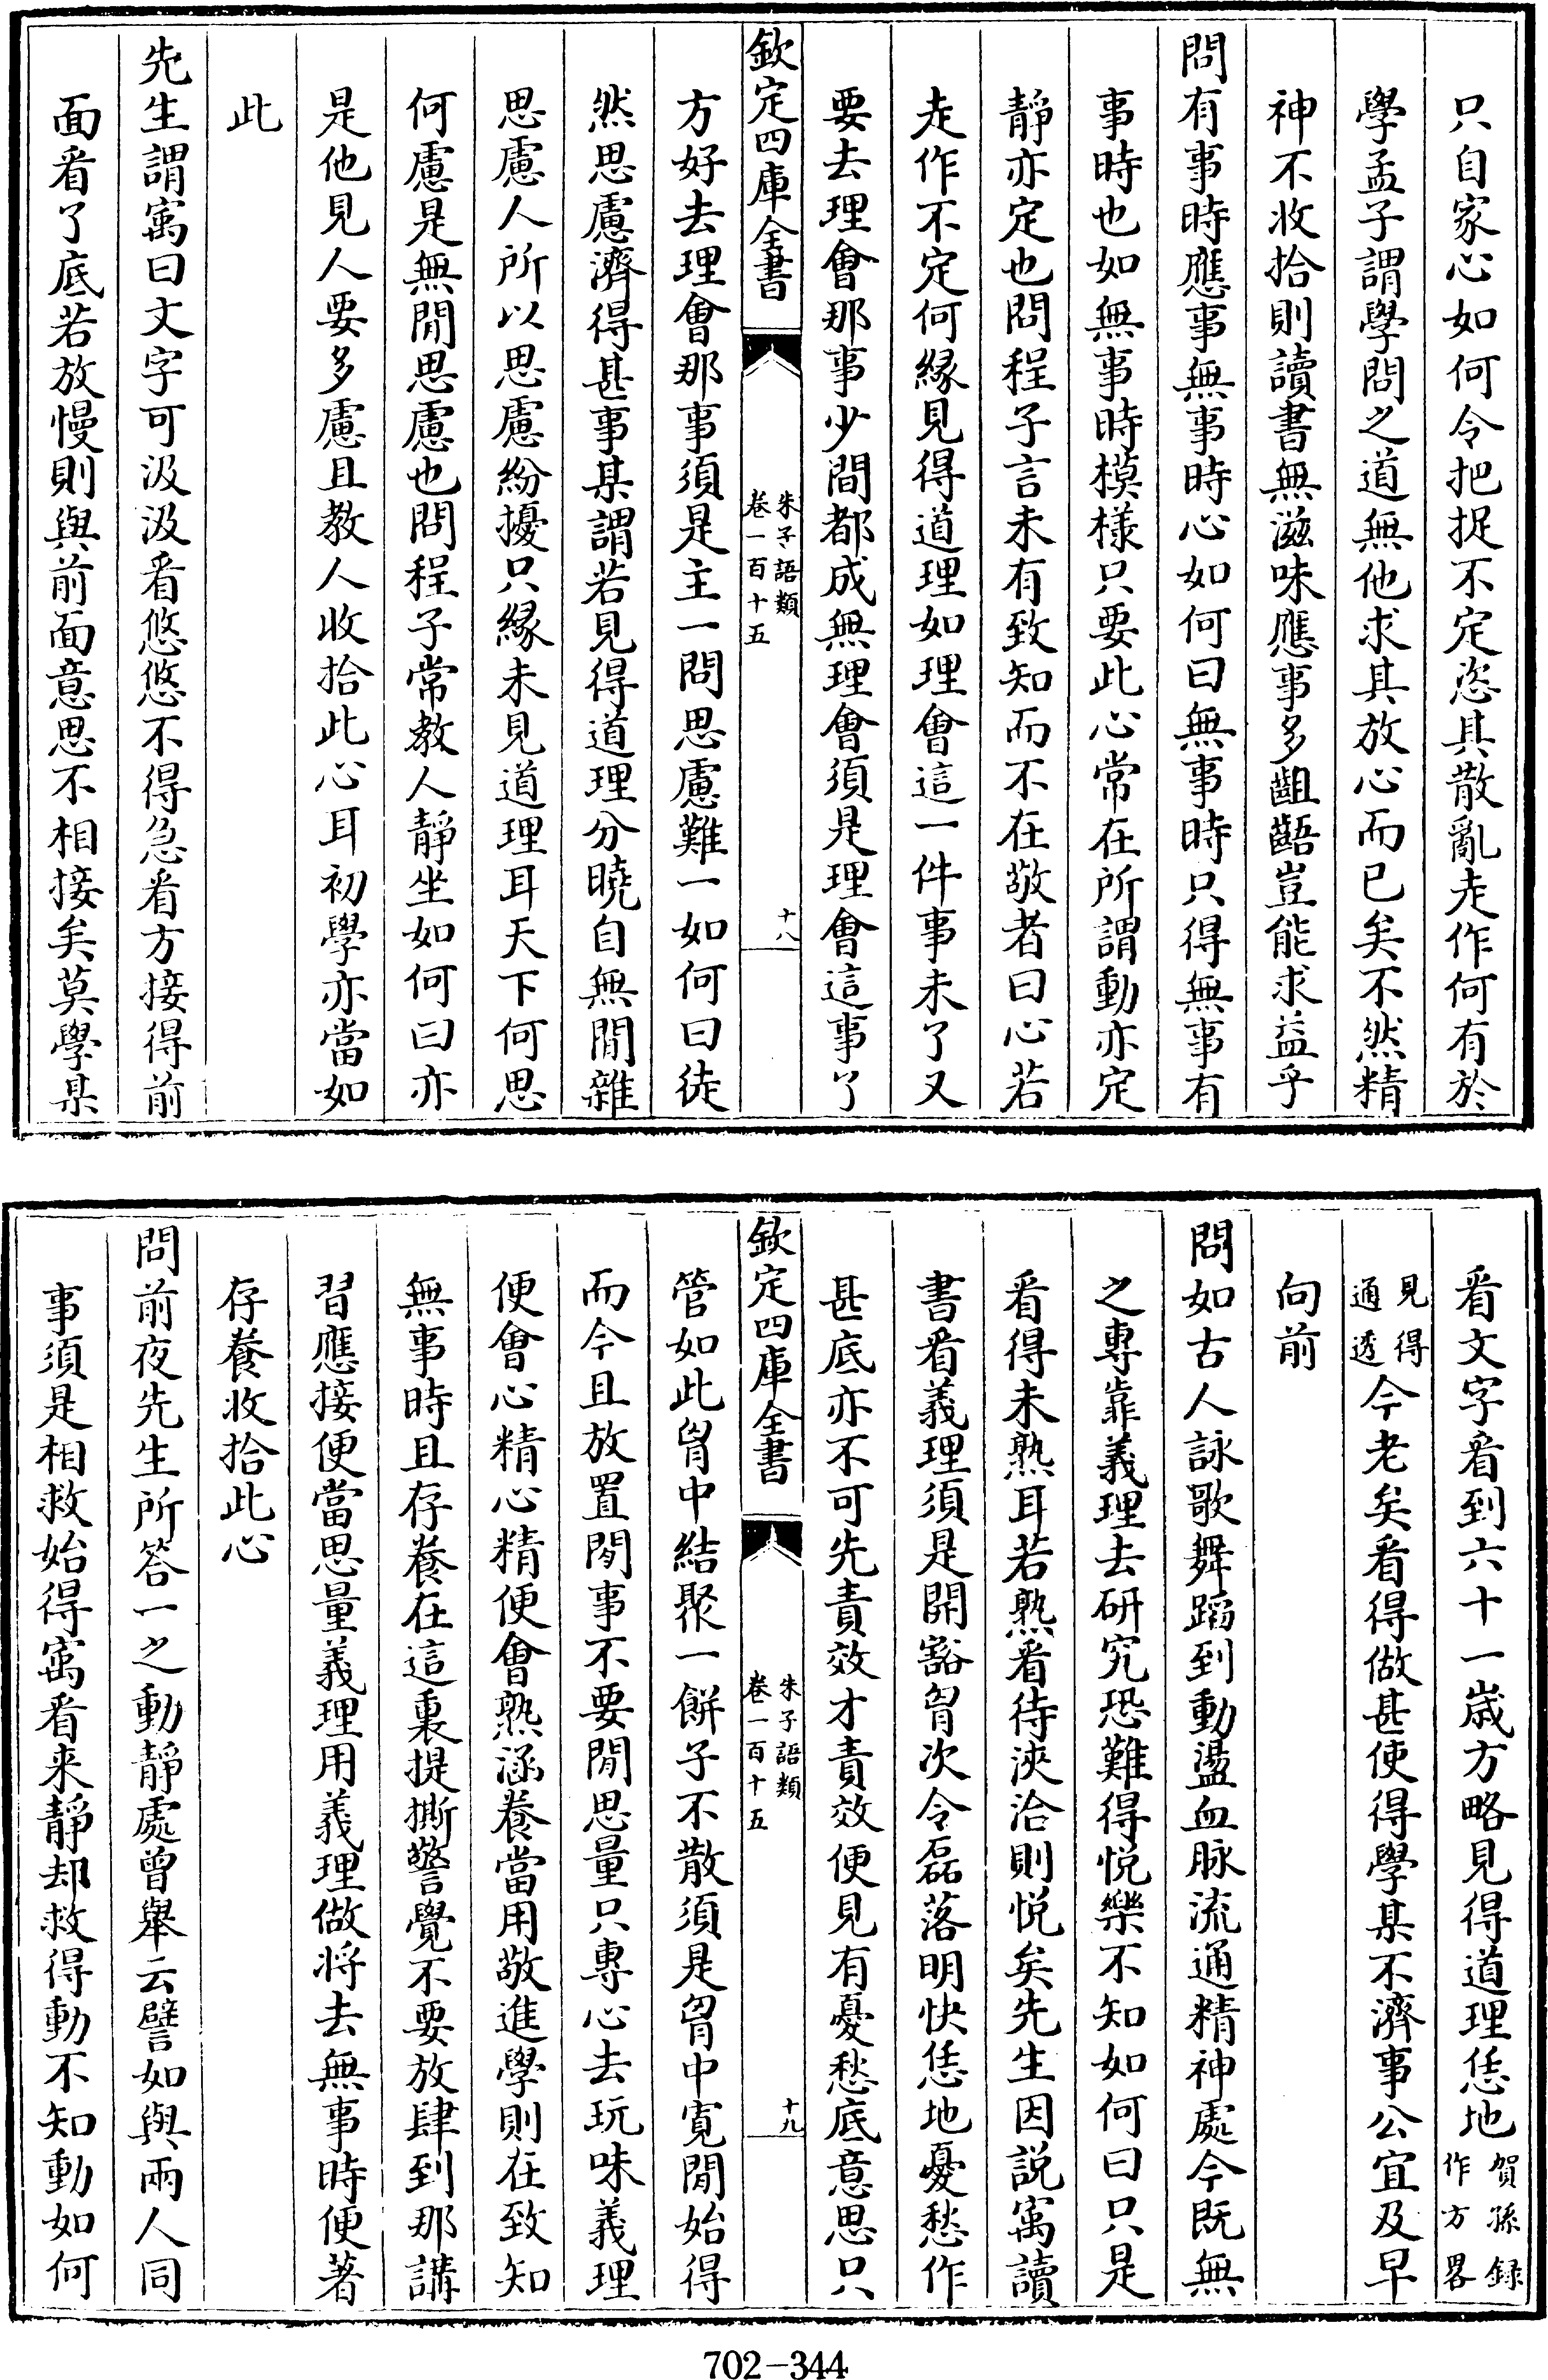 只自家心如何令把捉不定恣其散亂走作何有於
學孟子謂學問之道無他求其放心而已矣不然精
神不收拾則讀書無滋味應事多齟齬豈能求益乎
問有事時應事無事時心如何曰無事時只得無事有
事時也如無事時模様只要此心常在所謂動亦定
靜亦定也問程子言未有致知而不在敬者曰心若
走作不定何緣見得道理如理會這一件事未了又
要去理會那事少間都成無理會須是理會這事了
欽定四庫全書
朱子語類
卷一百十五
十八
方好去理會那事須是主一問思慮難一如何曰徒
然思慮濟得甚事某謂若見得道理分曉自無閒雜
思慮人所以思慮紛擾只緣未見道理耳天下何思
何慮是無閒思慮也問程子常教人靜坐如何曰亦
是他見人要多慮且教人收拾此心耳初學亦當如
此
先生謂㝢曰文字可汲汲看悠悠不得急看方接得前
面看了底若放慢則與前面意思不相接矣莫學某
看文字看到六十一嵗方略見得道理恁地賀孫録
作方畧
見得
通透今老矣看得做甚使得學某不濟事公宜及早
向前
問如古人詠歌舞蹈到動盪血脉流通精神處今既無
之專靠義理去研究恐難得悅樂不知如何曰只是
看得未熟耳若熟看待浹洽則悅矣先生因說㝢讀
書看義理須是開豁胷次令磊落明快恁地憂愁作
甚底亦不可先責效才責效便見有憂愁底意思只
欽定四庫全書
朱子語類
卷一百十五
十九
管如此胷中結聚一餅子不散須是胷中寛閒始得
而今且放置閑事不要閒思量只專心去玩味義理
便會心精心精便會熟涵養當用敬進學則在致知
無事時且存養在這裏提撕警覺不要放肆到那講
習應接便當思量義理用義理做將去無事時便著
存養收拾此心
問前夜先生所答一之動靜處曽舉云譬如與兩人同
事須是相救始得㝢看来靜却救得動不知動如何
702-344